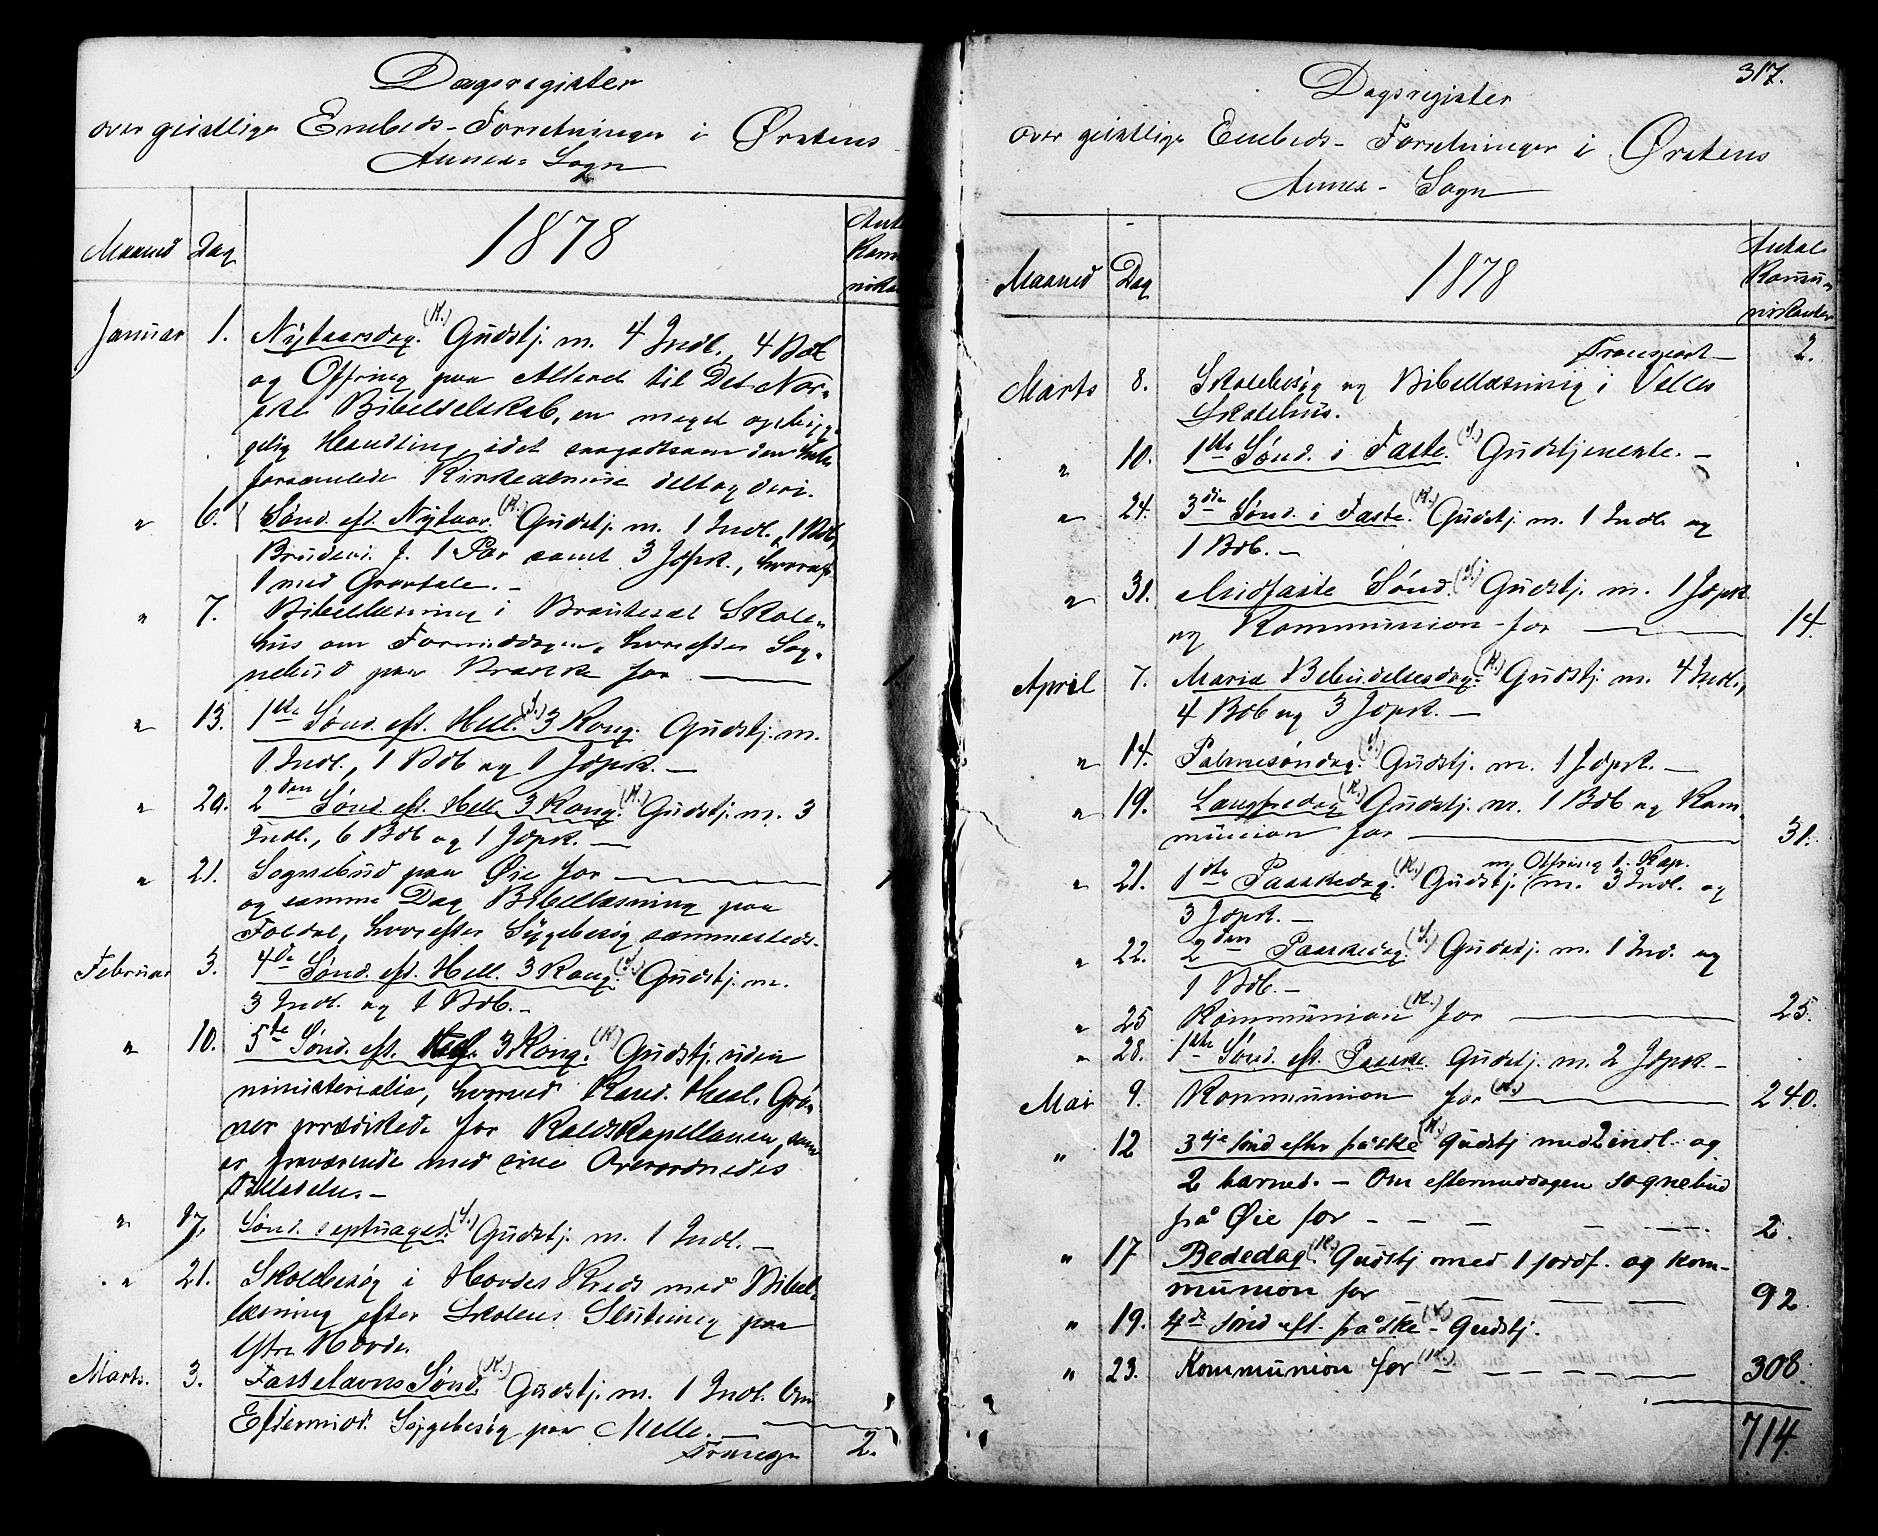 Dagsregister
over geistlige Embeds-Forretninger i Ørstens
Annex-Sogn
Maaned Dag 1878
Januar 1. Nytaarsdag. (K.) Gudstj. m. 4 Indl., 4 Bdb
og Offring paa Alteret til Det Nor-
ske Bibelselskab, en meget opbyg-
gelig Handling, idet saagodtsom den hele
forsamlede Kirkealmue deltog deri.
" 6. Sønd. eft. Nytaar. (K.) Gudstj. m. 1 Indl., 1 Bdb,
Brudevi. f. 1 Par samt 3 Jdpk., hvoraf
1 med Gravtale. -
" 7. Bibellæsning i Brautesæt Skole-
hus om Formiddagen, hvorefter Sog-
nebud paa Brække for — 1
" 13. 1ste Sønd. eft. Hell. (S.) 3 Kong. Gudstj. m.
1 Indl., 1 Bdb og 1 Jdpk. —
" 20. 2den Sønd. eft. Hell. 3 Kong. (K.) Gudstj. m. 3
Indl., 6 Bdb og 1 Jdpk. —
" 21. Sognebud paa Øie for — 1
og samme Dag Bibellæsning paa
Foldal, hvorefter Sygebesøg sammesteds.
Februar 3. 4de Sønd. eft. Hell. 3 Kong. (S.) Gudstj. m.
3 Indl. og 1 Bdb. -
" 10. 5te Sønd. eft. Hell. 3 Kong. (K.) Gudstj. uden
ministerialia, hvorved Kand. theol. Grö-
ner prædikede for Kaldskapellanen, som
er fraværende med sine Overordnedes
Tilladelse. -
" 17. Sønd. septuages. (S.) Gudstj. m. 1 Indl. —
" 21. Skolebesøg i Hovdes Kreds med Bibel-
læsning efter Skolens Slutning paa
Ytre Hovde.
Marts. 3. Fastelavns Sønd. (K.) Gudstj. m. 1 Indl. Om
Eftermidd. Sygebesøg paa Melle. —
Transp. 2.
317.
Dagsregister
over geistlige Embeds-Forretninger i Ørstens
Annex-Sogn
Maaned Dag 1878 Antal
Kommu-
nikanter
Transport — 2.
Marts 8. Skolebesøg og Bibellæsning i Velles
Skolehus.
" 10. 1ste Sønd. i Faste. (S.) Gudstjeneste. -
" 24. 3die Sønd. i Faste. (K.) Gudstj. m. 1 Indl. og
1 Bdb. —
" 31. Midfaste Sønd. (S.) Gudstj. m. 1 Jdpk.
og Kommunion for — 14.
April 7. Mariæ Bebudelsesdag. (K.) Gudstj. m. 4 Indl.,
4 Bdb og 3 Jdpk. —
" 14. Palmesøndag. (S.) Gudstj. m. 1 Jdpk. —
" 19. Langfredag (K.) Gudstj. m. 1 Bdb og Kom-
munion for — 31.
og Offring t. Kap.
" 21. 1ste Paaskedag. (K.) Gudstj. m. 3 Indl. og
3 Jdpk. —
" 22. 2den Paaskedag. (S.) Gudstj. m. 1 Ind. og
1 Bdb. —
" 25 Kommunion (K.) for — 25.
" 28. 1ste Sønd. eft. Paaske. Gudstj. m. 2 Jdpk. -
Mai 9. Kommunion for (K.) — 240.
" 12 3dje sönd efter påske (K.) Gudstj med 2 indl. og
2 barned. - Om eftermiddagen sognebud
på Øie for — 2.
" 17 Bededag. (K.) Gudstj med 1 jordf. og kom-
munion for — 92.
" 19. 4de sönd eft. påske (K.) - Gudstj.
" 23. Kommunion for (K.) — 308.
714.